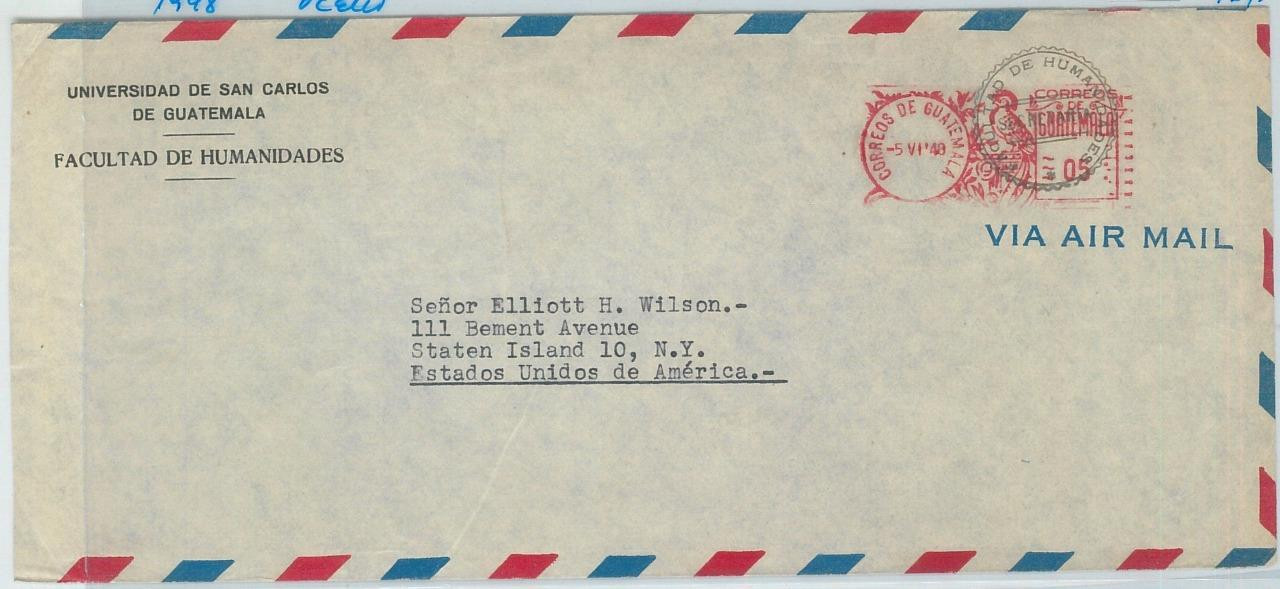 1948
UNIVERSIDAD DE SAN CARLOS
DE GUATEMALA
FACULTAD DE HUMANIDADES
CORREOS DE GUATEMALA
-5 VI '48
FACULTAD DE HUMANIDADES
CORREOS
DE
GUATEMALA
05
VIA AIR MAIL
Señor Elliott H. Wilson.-
111 Bement Avenue
Staten Island 10, N.Y.
Estados Unidos de América.-